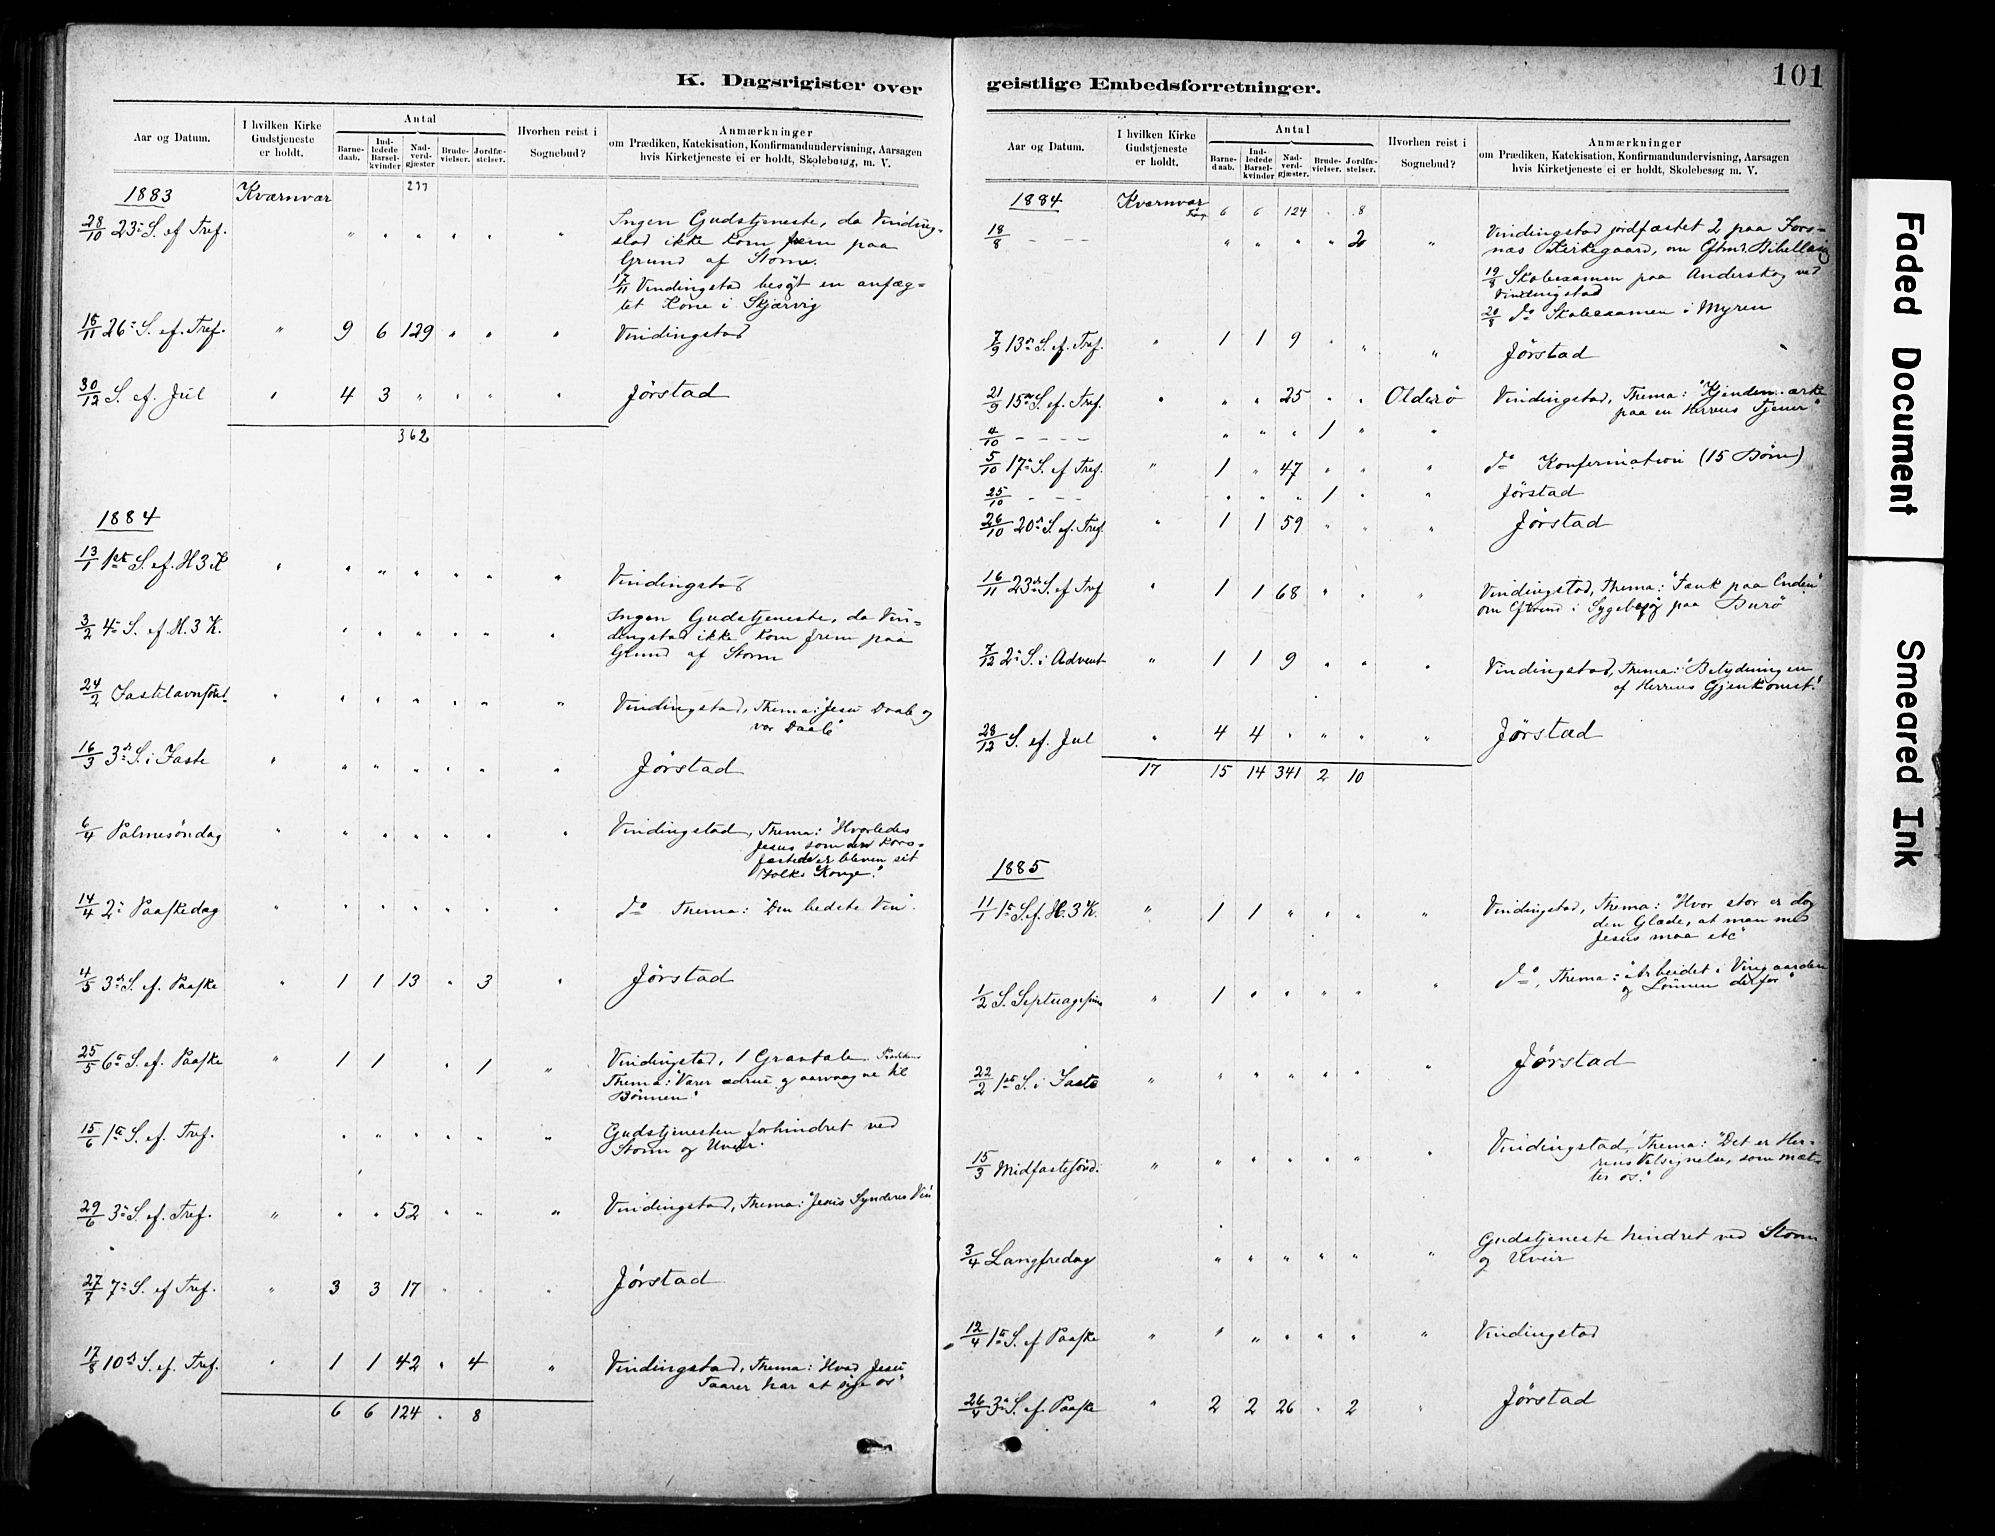 K. Dagsrigister over
Aar og Datum.
I hvilken Kirke
Gudstjeneste
er holdt.
Antal
Barne-
daab.
Ind-
ledede
Barsel-
kvinder
Nad-
verd-
gjæster
Brude-
vielser.
Jordfæ-
stelser.
Hvorhen reist i
Sognebud?
Anmærkninger
om Prædiken, Katekisation, Konfirmandundervisning, Aarsagen
hvis Kirketjeneste ei er holdt, Skolebesøg, m. V.
1883 Kværnvær 233
28/10 23de S. ef Tref. " " " " " " Ingen Gudstjeneste, da Vinding-
stad ikke kom frem paa
Grund af Storm.
17/11 Vindingstad besögt en anfæg-
tet Kone i Skjærvig
18/11 26de S. ef. Tref. " 9 6 129 " " " Vindingstad
30/12 S. ef. Jul " 4 3 " " " " Jörstad
362
1884
13/1 1ste S. ef. H 3 K " " " " " " " Vindingstad
3/2 4de S. ef. H. 3 K. " " " " " " Ingen Gudstjeneste, da Vin-
dingstad ikke kom frem paa
Grund af Storm
24/2 Fastelavnsönd. " " " " " " " Vindingstad, Thema: "Jesu Daab og
vor Daab"
16/3 3de S. i Faste " " " " " " " Jörstad
6/4 Palmesöndag " " " " " " " Vindingstad, Thema: "Hvorledes
Jesus som den kors-
fæstede er bleven sit
Folks Konge."
14/4 2den Paaskedag " " " " " " " do Thema: "Den bedste Ven".
4/5 3de S. ef. Paaske " 1 1 13 " 3 " Jörstad
25/5 6te S. ef. Paaske " 1 1 " 1 " Vindingstad, 1 Gravtale
Thema: "Værer ædrue og aarvaagne til
Bönnen"
15/6 1ste S. ef. Tref. " " " " " " Gudstjenesten forhindret ved
Storm og Uveir.
29/6 3de S. ef. Tref. " " " 52 " " " Vindingstad, Thema: "Jesus Synderes Ven
27/7 7de S. ef Tref. " 3 3 17 " " " Jörstad
17/8 10de S. ef. Tref. " 1 1 42 " 4 " Vindingstad, Thema: "Hvad Jesu
Taarer har at sige os"
6 6 124 " 8
geistlige Embedsforretninger.
101
Aar og Datum.
I hvilken Kirke
Gudstjeneste
er holdt.
Antal
Barne-
daab.
Ind-
ledede
Barsel-
kvinder
Nad-
verd-
gjæster.
Brude-
vielser.
Jordfæ-
stelser.
Hvorhen reist i
Sognebud?
Anmærkninger
om Prædiken, Katekisation, Konfirmandundervisning, Aarsagen
hvis Kirketjeneste ei er holdt, Skolebesøg m. V.
1884 Kværnvær 6 6 124 " 8
18/8 - - - " " " " 2 " Vindingstad jordfæstet 2 paa Fors-
næs Kirkegaard, om Eftmd. Bibellæsng
19/8 Skolexamen paa Anderskog ved
Vindingstad
20/8 do Skolexamen i Myren
7/9 13de S. ef. Tref. " 1 1 9 " " " Jörstad
21/9 15de S. ef. Tref. " " " 25 " " Olderö Vindingstad, Thema: "Kjendemærke
paa en Herrens Tjener"
4/10 - - - - " " " 1 " "
5/10 17de S. ef Tref. " 1 " 47 " " " do Konfirmation (15 Börn)
25/10 - - - " " " 1 " " Jörstad
26/10 20de S. ef. Tref. " 1 1 59 " " " Jörstad
16/11 23de S. ef Tref " 1 1 68 " " " Vindingstad, Thema: "Tænk paa Enden"
om Eftmd i Sygebesög paa
7/12 2den S. i Advent " 1 1 9 " " " Vindingstad, Thema: "Betydningen
af Herrens Gjenkomst."
28/12 S. ef. Jul " 4 4 " " " " Jörstad
17 15 14 341 2 10
1885
11/1 1ste S. ef. H. 3 K. " 1 1 " " " " Vindingstad, Thema: "Hvor stor er dog
den Glæde, at man med
Jesus maa etc"
1/2 S. Septuagesima " 1 " " " " " do, Thema: "Arbeidet i Vingaarden
og Lönnen derfor"
22/2 1ste S. i Faste " " " " " " " Jörstad
15/3 Midfastesönd. " " " " " " " Vindingstad, Thema: "Det er Her-
rens Velsignelse, som mæt-
ter os."
3/4 Langfredag " " " " " " Gudstjeneste hindret ved Storm
og Uveir
12/4 1ste S. ef Paaske " " " " " " " Vindingstad
26/4 3de S. ef. Paaske " 2 2 26 " 2 " Jörstad
Faded Document
Smeared Ink